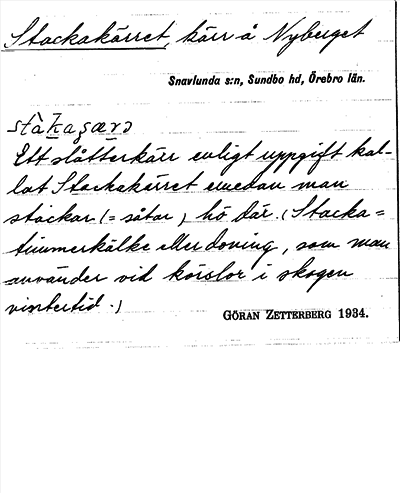 Stackakärret, kärr å Nyberget
Snavlunda s:n, Sundbo hd, Örebro län.
stàkagærə
Ett slåtterkärr enligt uppgift kal-
lat Stackakärret emedan man
stackar (= såtar) hö där. (Stacka =
timmerkälke eller doning, som man
använder vid körslor i skogen
vintertid.)
GÖRAN ZETTERBERG 1934.